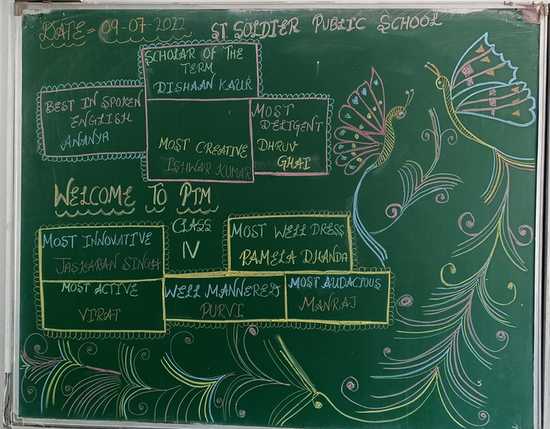 DATE = 09-07-2022
ST SOLDIER PUBLIC SCHOOL
SCHOLAR OF THE
TERM
DISHAAN KAUR
BEST IN SPOKEN
ENGLISH
ANANYA
MOST CREATIVE
ISHWAR KUMAR
MOST
DELIGENT
DHRUV
GHAI
WELCOME TO PTM
CLASS
IV
MOST INNOVATIVE
JASKARAN SINGH
MOST WELL DRESS
PAMELA
MOST ACTIVE
VIRAT
WELL MANNERED
PURVI
MOST AUDACIOUS
MANRAJ